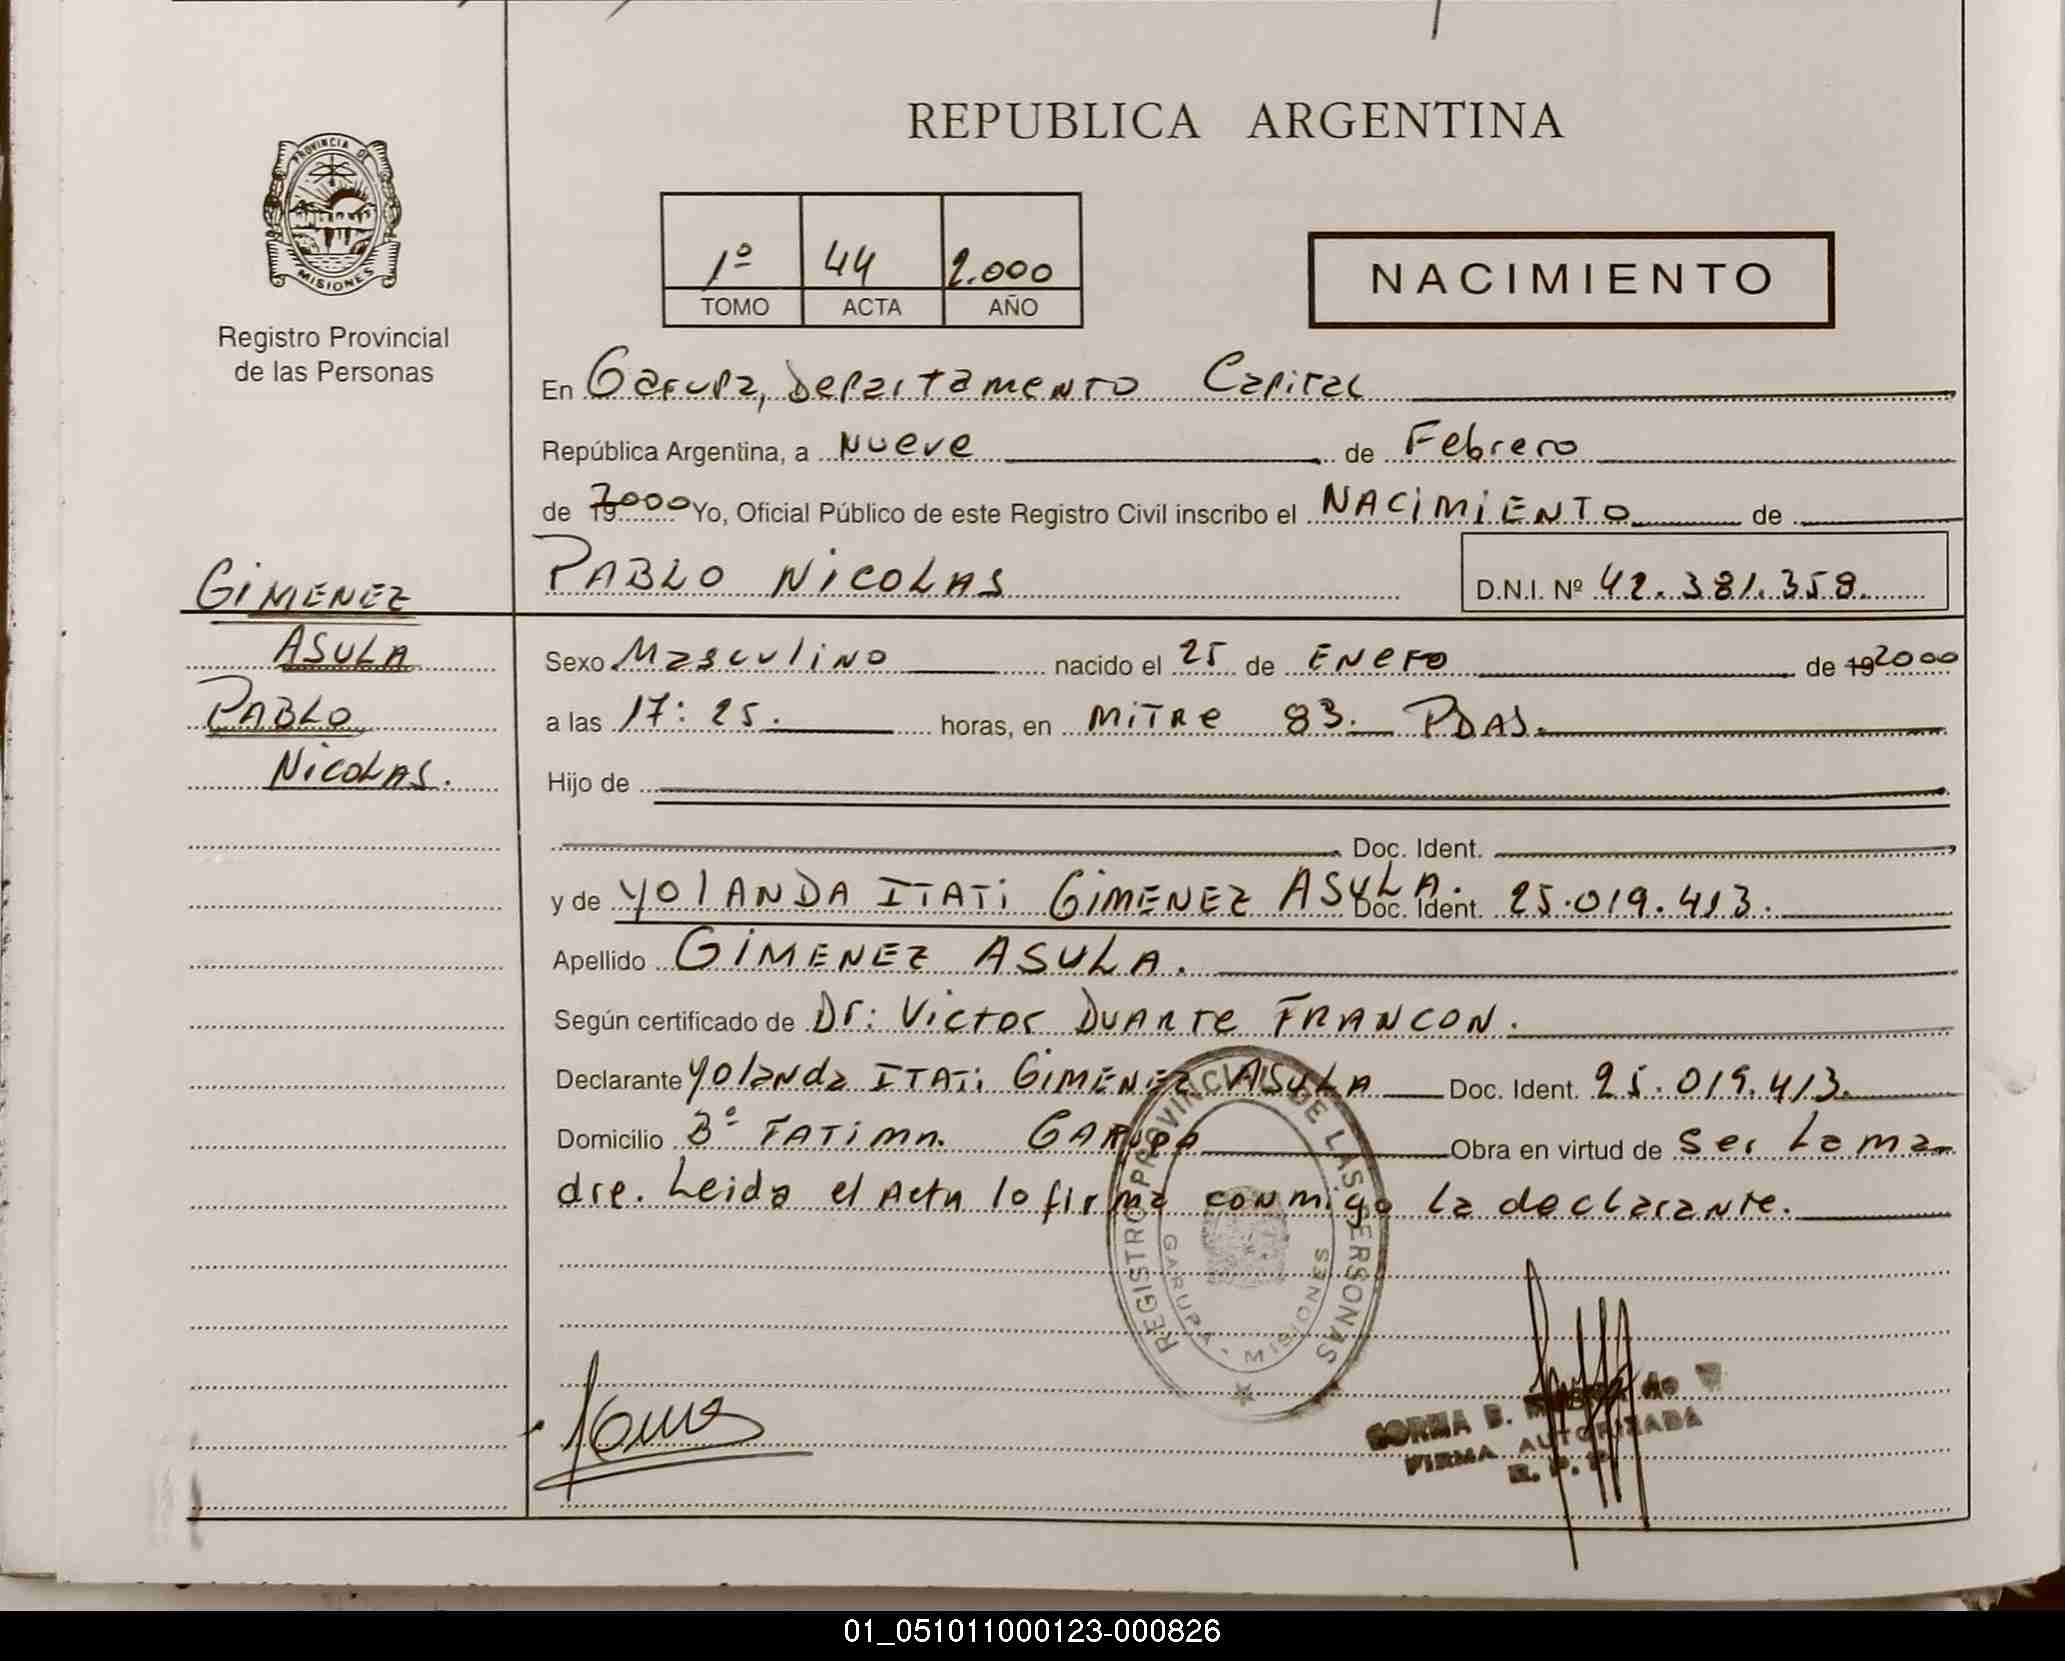 REPUBLICA ARGENTINA
PROVINCIA DE
MISIONES
Registro Provincial
de las Personas
1º 44 2.000
TOMO ACTA AÑO
NACIMIENTO
En Garupa, Departamento Capital
República Argentina, a Nueve de Febrero
de 19 2000 Yo, Oficial Público de este Registro Civil inscribo el NACIMIENTO de
PABLO NICOLAS D.N.I. Nº 42.381.358.
GIMENEZ
ASULA
PABLO
NICOLAS.
Sexo Masculino nacido el 25 de ENERO de 19 2000
a las 17:25. horas, en MITRE 83. PDAS.
Hijo de
Doc. Ident.
y de YOLANDA ITATI GIMENEZ ASULA. Doc. Ident. 25.019.413.
Apellido GIMENEZ ASULA.
Según certificado de Dr: Victor DUARTE FRANCON.
Declarante Yolanda ITATI GIMENEZ ASULA Doc. Ident. 25.019.413.
Domicilio Bº FATIMA. GARUPA Obra en virtud de ser La ma
dre. Leida el Acta lo firma conmigo la declarante.
REGISTRO PROVINCIAL DE LAS PERSONAS
GARUPA - MISIONES
B.
de
FIRMA AUTORIZADA
R. P. P.
01_051011000123-000826